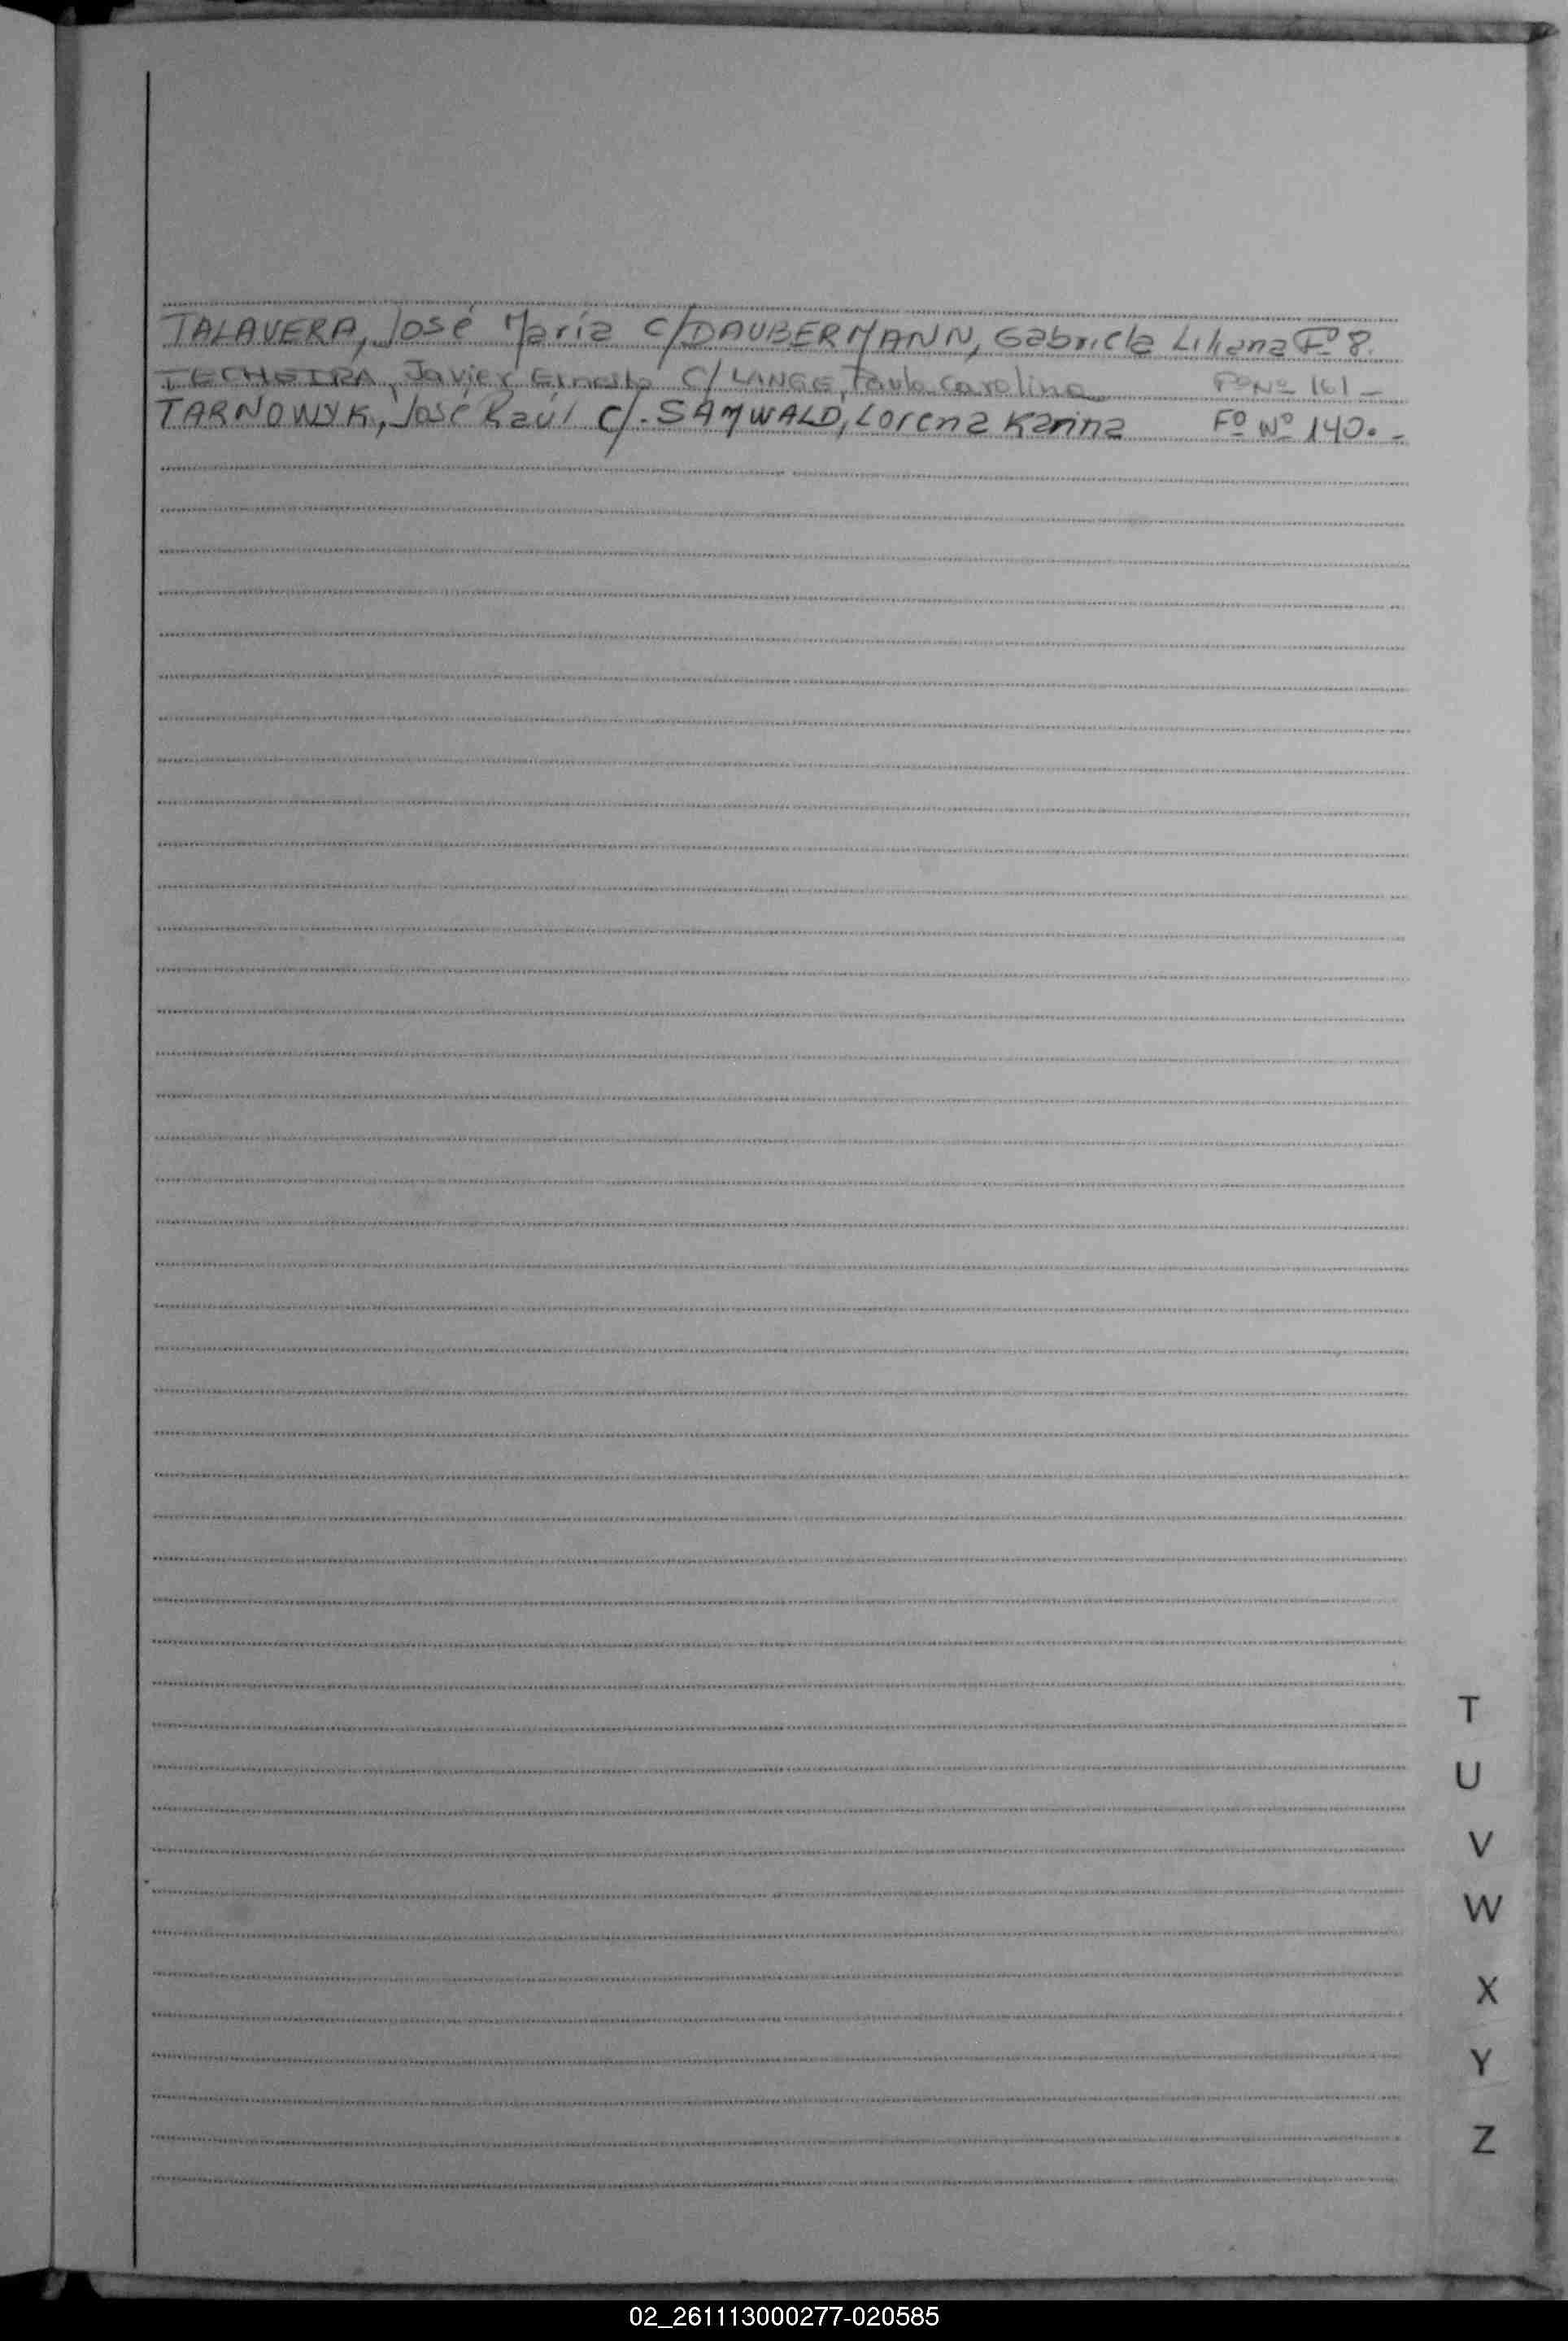 TALAVERA, José María C/ DAUBERMANN, Gabriela Liliana Fº 8.
TECHEIRA, Javier Ernesto C/ LANGE, Paula Carolina Fº Nº 161 -
TARNOWYK, José Raúl C/. SAMWALD, Lorena Karina Fº Nº 140. -
T
U
V
W
X
Y
Z
02_261113000277-020585